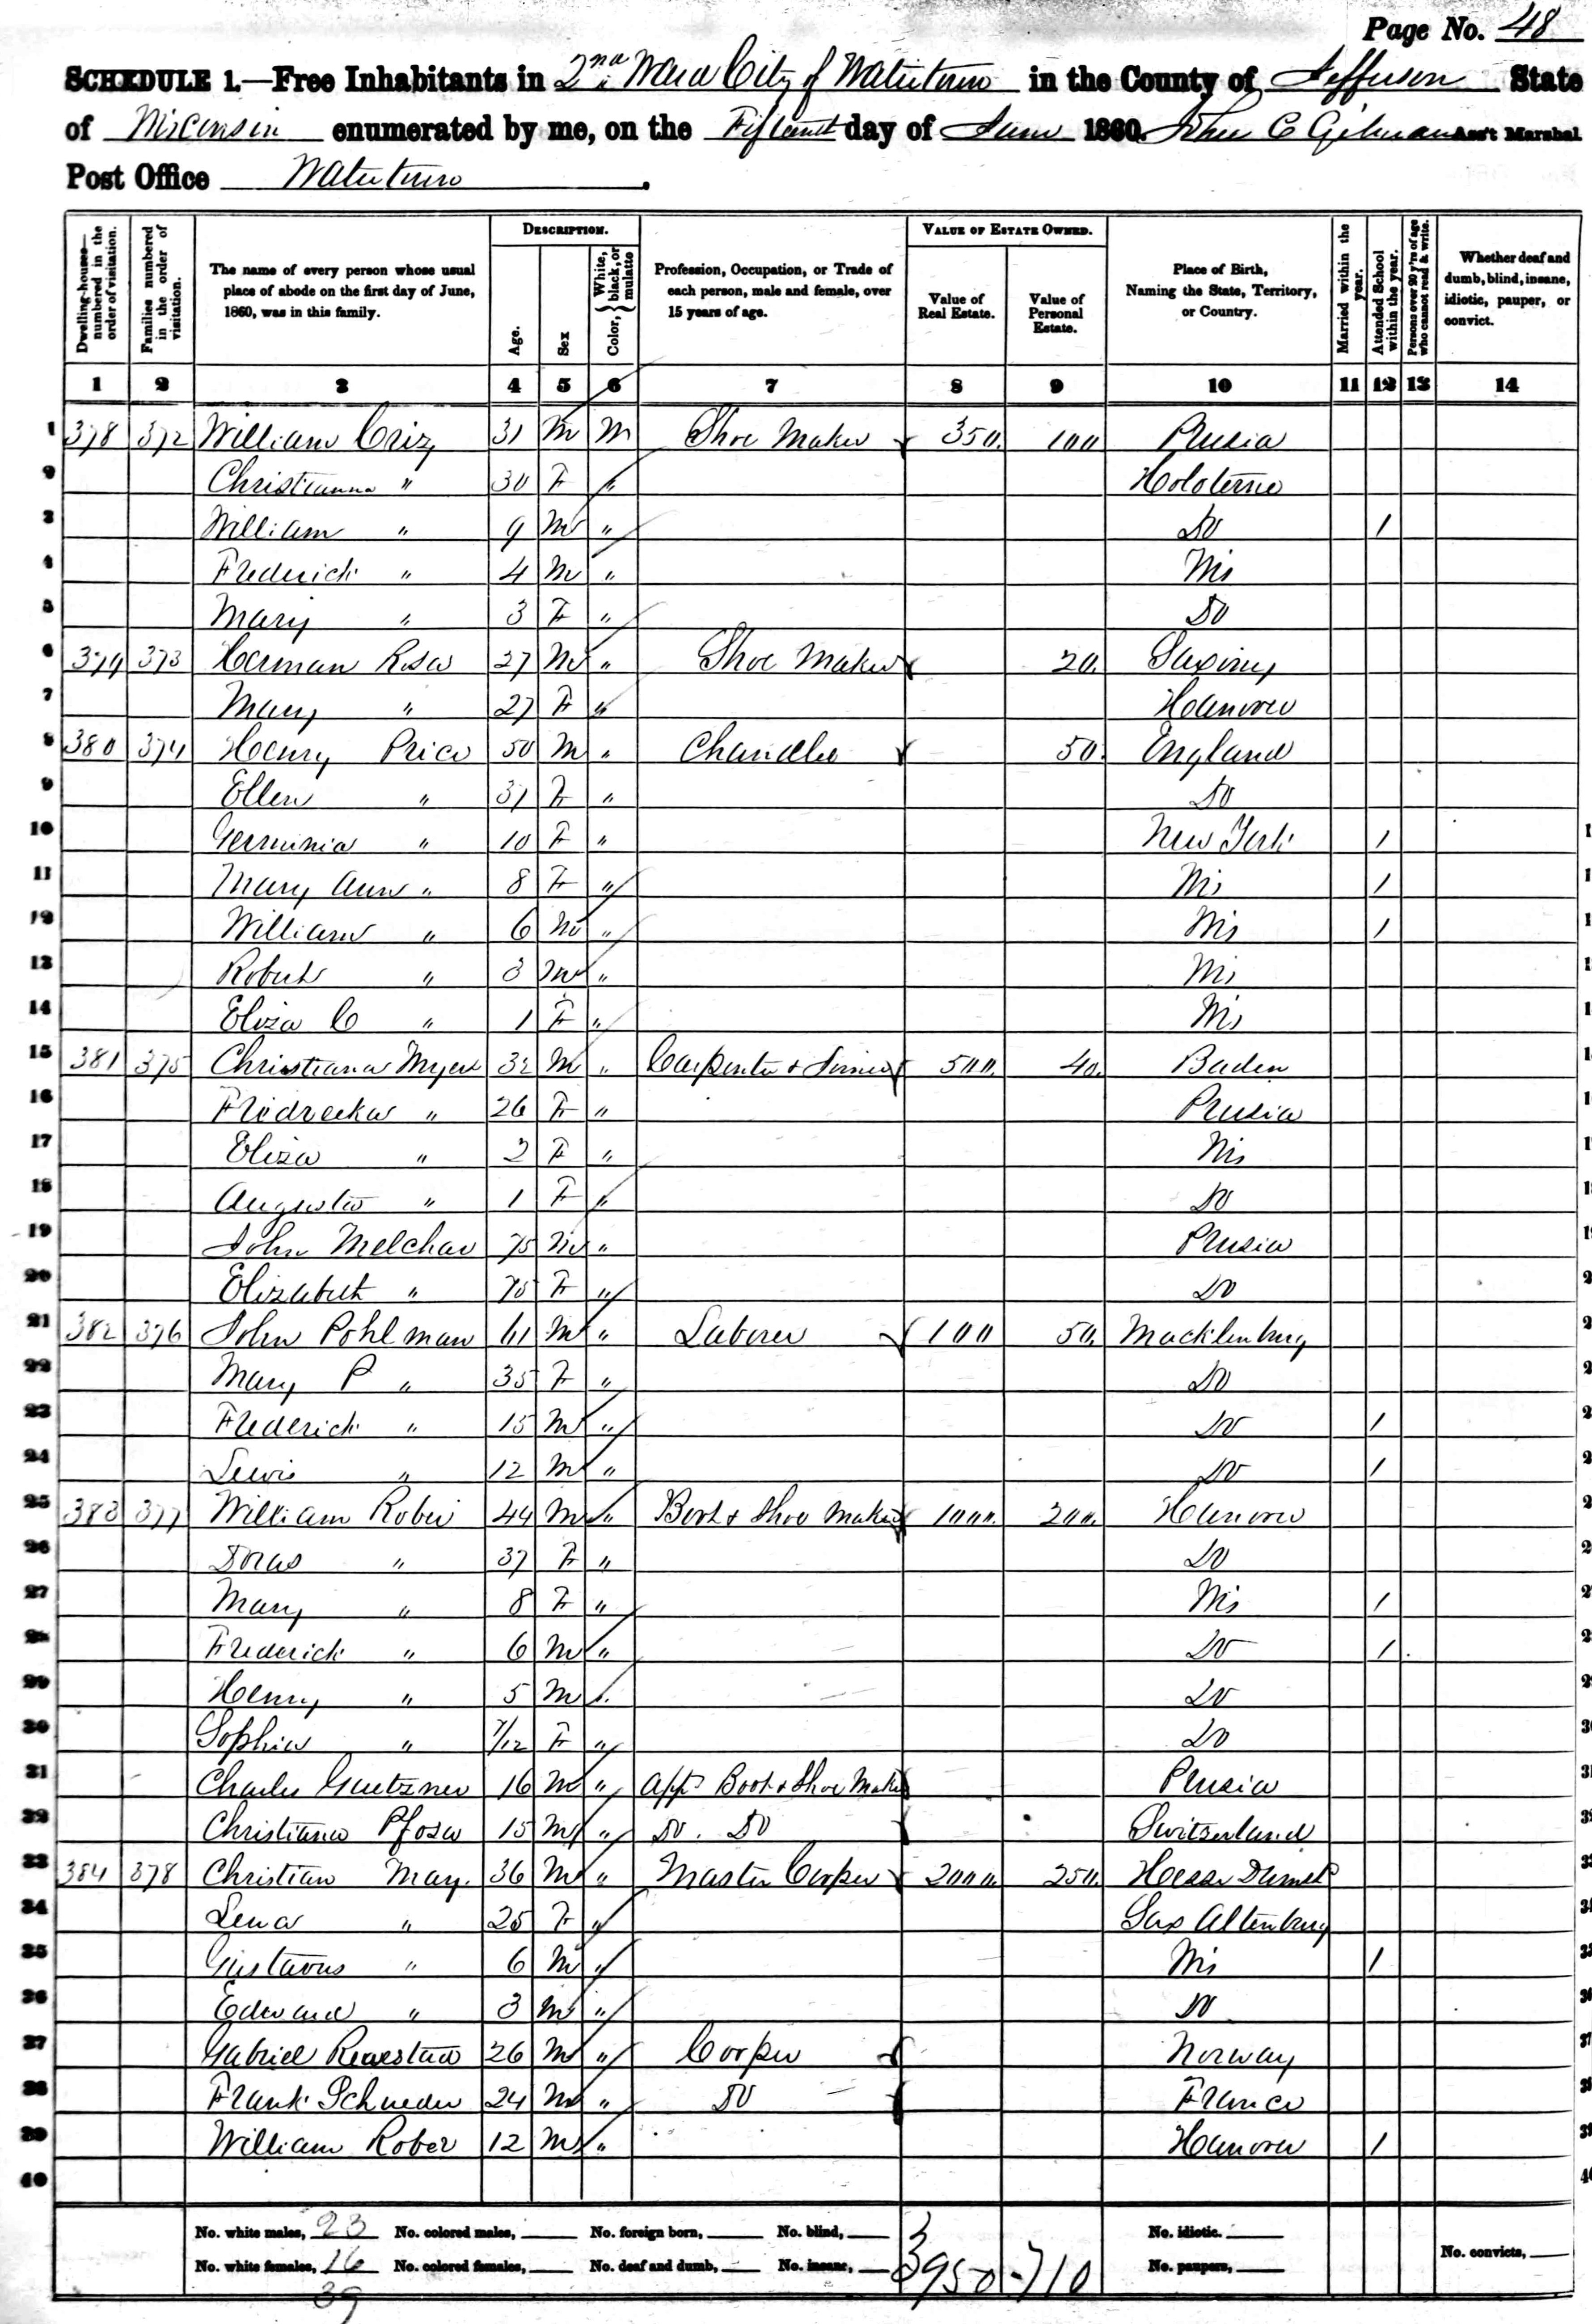 Page No. 48
SCHEDULE 1.—Free Inhabitants in 2nd Ward City of Watertown in the County of Jefferson State
of Wisconsin enumerated by me, on the Fifteenth day of June 1860. John C Gilman Ass't Marshal.
Post Office Watertown.
Dwelling-houses—numbered in the order of visitation.
Families numbered in the order of visitation.
The name of every person whose usual place of abode on the first day of June, 1860, was in this family.
DESCRIPTION.
Age.
Sex
Color, { White, black, or mulatto
Profession, Occupation, or Trade of each person, male and female, over 15 years of age.
VALUE OF ESTATE OWNED.
Value of Real Estate.
Value of Personal Estate.
Place of Birth, Naming the State, Territory, or Country.
Married within the year.
Attended School within the year.
Persons over 20 y'rs of age who cannot read & write.
Whether deaf and dumb, blind, insane, idiotic, pauper, or convict.
1 2 3 4 5 6 7 8 9 10 11 12 13 14
1 378 372 William Criz 31 M M Shoe Maker 350. 100 Prusia
2 Christianna " 30 F " Holsterne
3 William " 9 M " Do 1
4 Frederick " 4 M " Wis
5 Mary " 3 F " Do
6 379 373 Herman Rosa 27 M " Shoe Maker 20. Saxony
7 Mary " 27 F " Hanover
8 380 374 Henry Price 50 M " Chandler 50. England
9 Ellen " 37 F " Do
10 " 10 F " New York 1
11 Mary Ann " 8 F " Wis 1
12 William " 6 M " Wis 1
13 Robert " 3 M " Wis
14 Eliza C " 1 F " Wis
15 381 375 Christiana Myers 32 M " Carpenter & Joiner 500. 40. Baden
16 Fredreeka " 26 F " Prusia
17 Eliza " 2 F " Wis
18 Augusta " 1 F " Do
19 John Melchar 75 M " Prusia
20 Elizabeth " 75 F " Do
21 382 376 John Pohlman 61 M " Laborer 100 50. Macklenburg
22 Mary P " 35 F " Do
23 Frederick " 15 M " Do 1
24 Lewis " 12 M " Do 1
25 383 377 William Rober 44 M " Boot & Shoe Maker 1000. 200. Hanover
26 Doras " 37 F " Do
27 Mary " 8 F " Wis 1
28 Frederick " 6 M " Do 1
29 Henry " 5 M " Do
30 Sophia " 7/12 F " Do
31 Charles Guetzner 16 M " App Boot & Shoe Maker Prusia
32 Christiana Pfosa 15 M " Do. Do Switzerland
33 384 378 Christian May. 36 M " Master Cooper 2000. 250. Hesse Darmst
34 Lena " 25 F " Sax Altenburg
35 Gustavus " 6 M " Wis 1
36 Edward " 3 M " Do
37 Gabriel 26 M " Cooper Norway
38 Frank Schneder 24 M " Do France
39 William Rober 12 M " Hanover 1
40
No. white males, 23 No. colored males, No. foreign born, No. blind, No. idiotic.
No. white females, 16 No. colored females, No. deaf and dumb, No. insane, 3950 710 No. paupers, No. convicts,
39